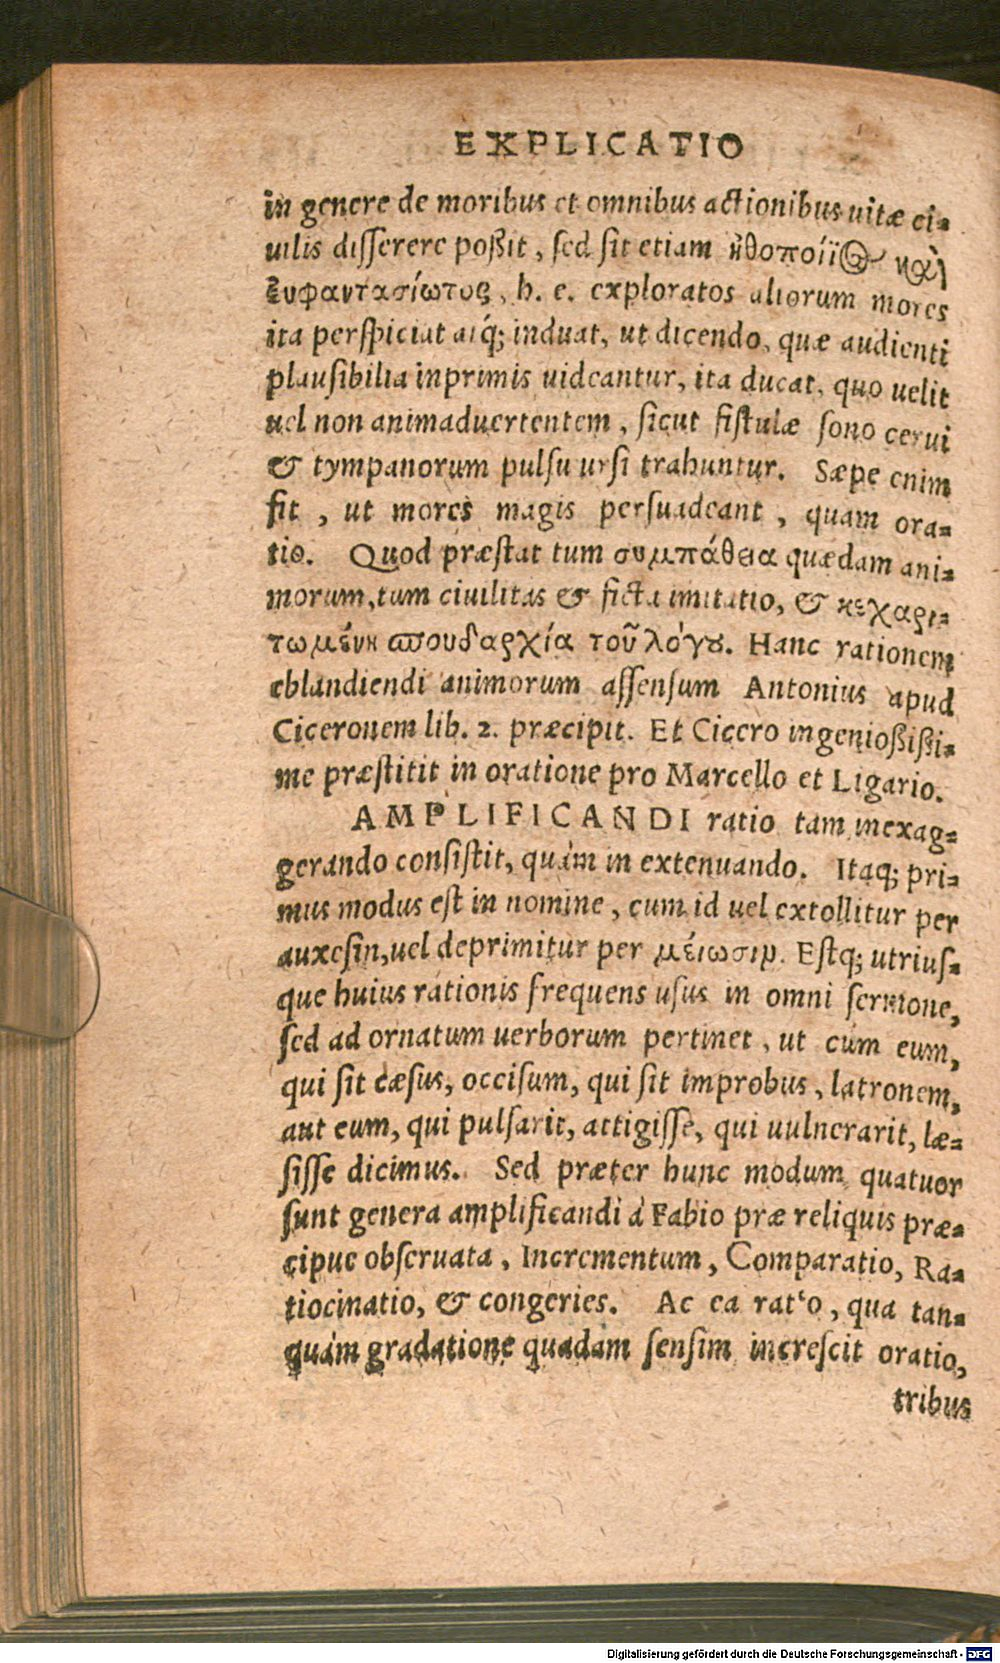 EXPLICATIO
in genere de moribus et omnibus actionibus uitæ ci-
uilis disserere poßit, sed sit etiam ἠθοποίϊος καὶ
ἐυφαντασίωτος, h. e. exploratos aliorum mores
ita perspiciat atq́; induat, ut dicendo, quæ audienti
plausibilia inprimis uideantur, ita ducat, quo uelit
uel non animaduertentem, sicut fistulæ sono cerui
& tympanorum pulsu ursi trahuntur. Sæpe enim
fit, ut mores magis persuadeant, quam ora-
tio. Quod præstat tum συμπάθεια quædam ani-
morum, tum ciuilitas & ficta imitatio, & κεχαρι-
τωμένη σπουδαρχία τοῦ λόγου. Hanc rationem
eblandiendi animorum assensum Antonius apud
Ciceronem lib. 2. præcipit. Et Cicero ingenioßißi-
me præstitit in oratione pro Marcello et Ligario.
AMPLIFICANDI ratio tam inexag-
gerando consistit, quàm in extenuando. Itaq; pri-
mus modus est in nomine, cum id uel extollitur per
auxesin, uel deprimitur per μείωσιν. Estq; utrius-
que huius rationis frequens usus in omni sermone,
sed ad ornatum uerborum pertinet, ut cùm eum,
qui sit cæsus, occisum, qui sit improbus, latronem,
aut eum, qui pulsarit, attigisse, qui uulnerarit, læ-
sisse dicimus. Sed præter hunc modum quatuor
sunt genera amplificandi à Fabio præ reliquis præ-
cipue obseruata, Incrementum, Comparatio, Ra-
tiocinatio, & congeries. Ac ea ratio, qua tan-
quàm gradatione quadam sensim increscit oratio,
tribus
Digitalisierung gefördert durch die Deutsche Forschungsgemeinschaft - DFG